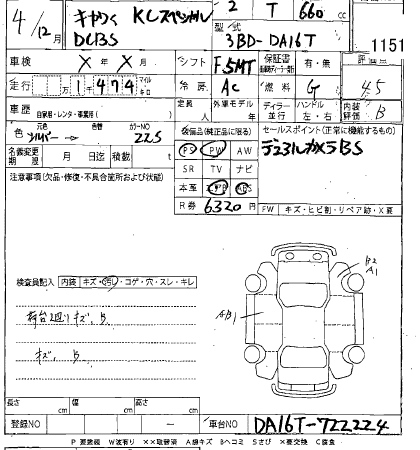 4/12月 キャリイ KCスペシャル 2 T 660 cc
DCBS 型式 3BD-DA16T 1151
車検 X 年 X 月 シフト F5MT 保証書 有・無 評価点
走行 1千474 マイル キロ 冷房 AC 燃料 G 4.5
車歴 自家用・レンタ・事業用( ) 定員 人 外車モデル 年 ディーラー 並行 ハンドル 左・右 内装評価 B
色 元色 シルバー 色替 カラーNO Z2S 装備品(純正品に限る) セールスポイント(正常に機能するもの)
名義変更期限 月 日迄 積載 t PS PW AW デュアルカメラBS
注意事項(欠品・修復・不具合箇所および状態) SR TV ナビ
本革 エアB ABS
R券 6320 円 FW キズ・ヒビ割・リペア跡・X要
検査員記入 内装 キズ・汚レ・コゲ・穴・スレ・キレ
B2
A1
AB1
荷台廻りキズ、B
キズ、B
長さ cm 幅 cm 高さ cm
登録NO - 車台NO DA16T-722224
P 要塗装 W波有り XX取替済 A線キズ Bヘコミ Sさび X要交換 C腐食